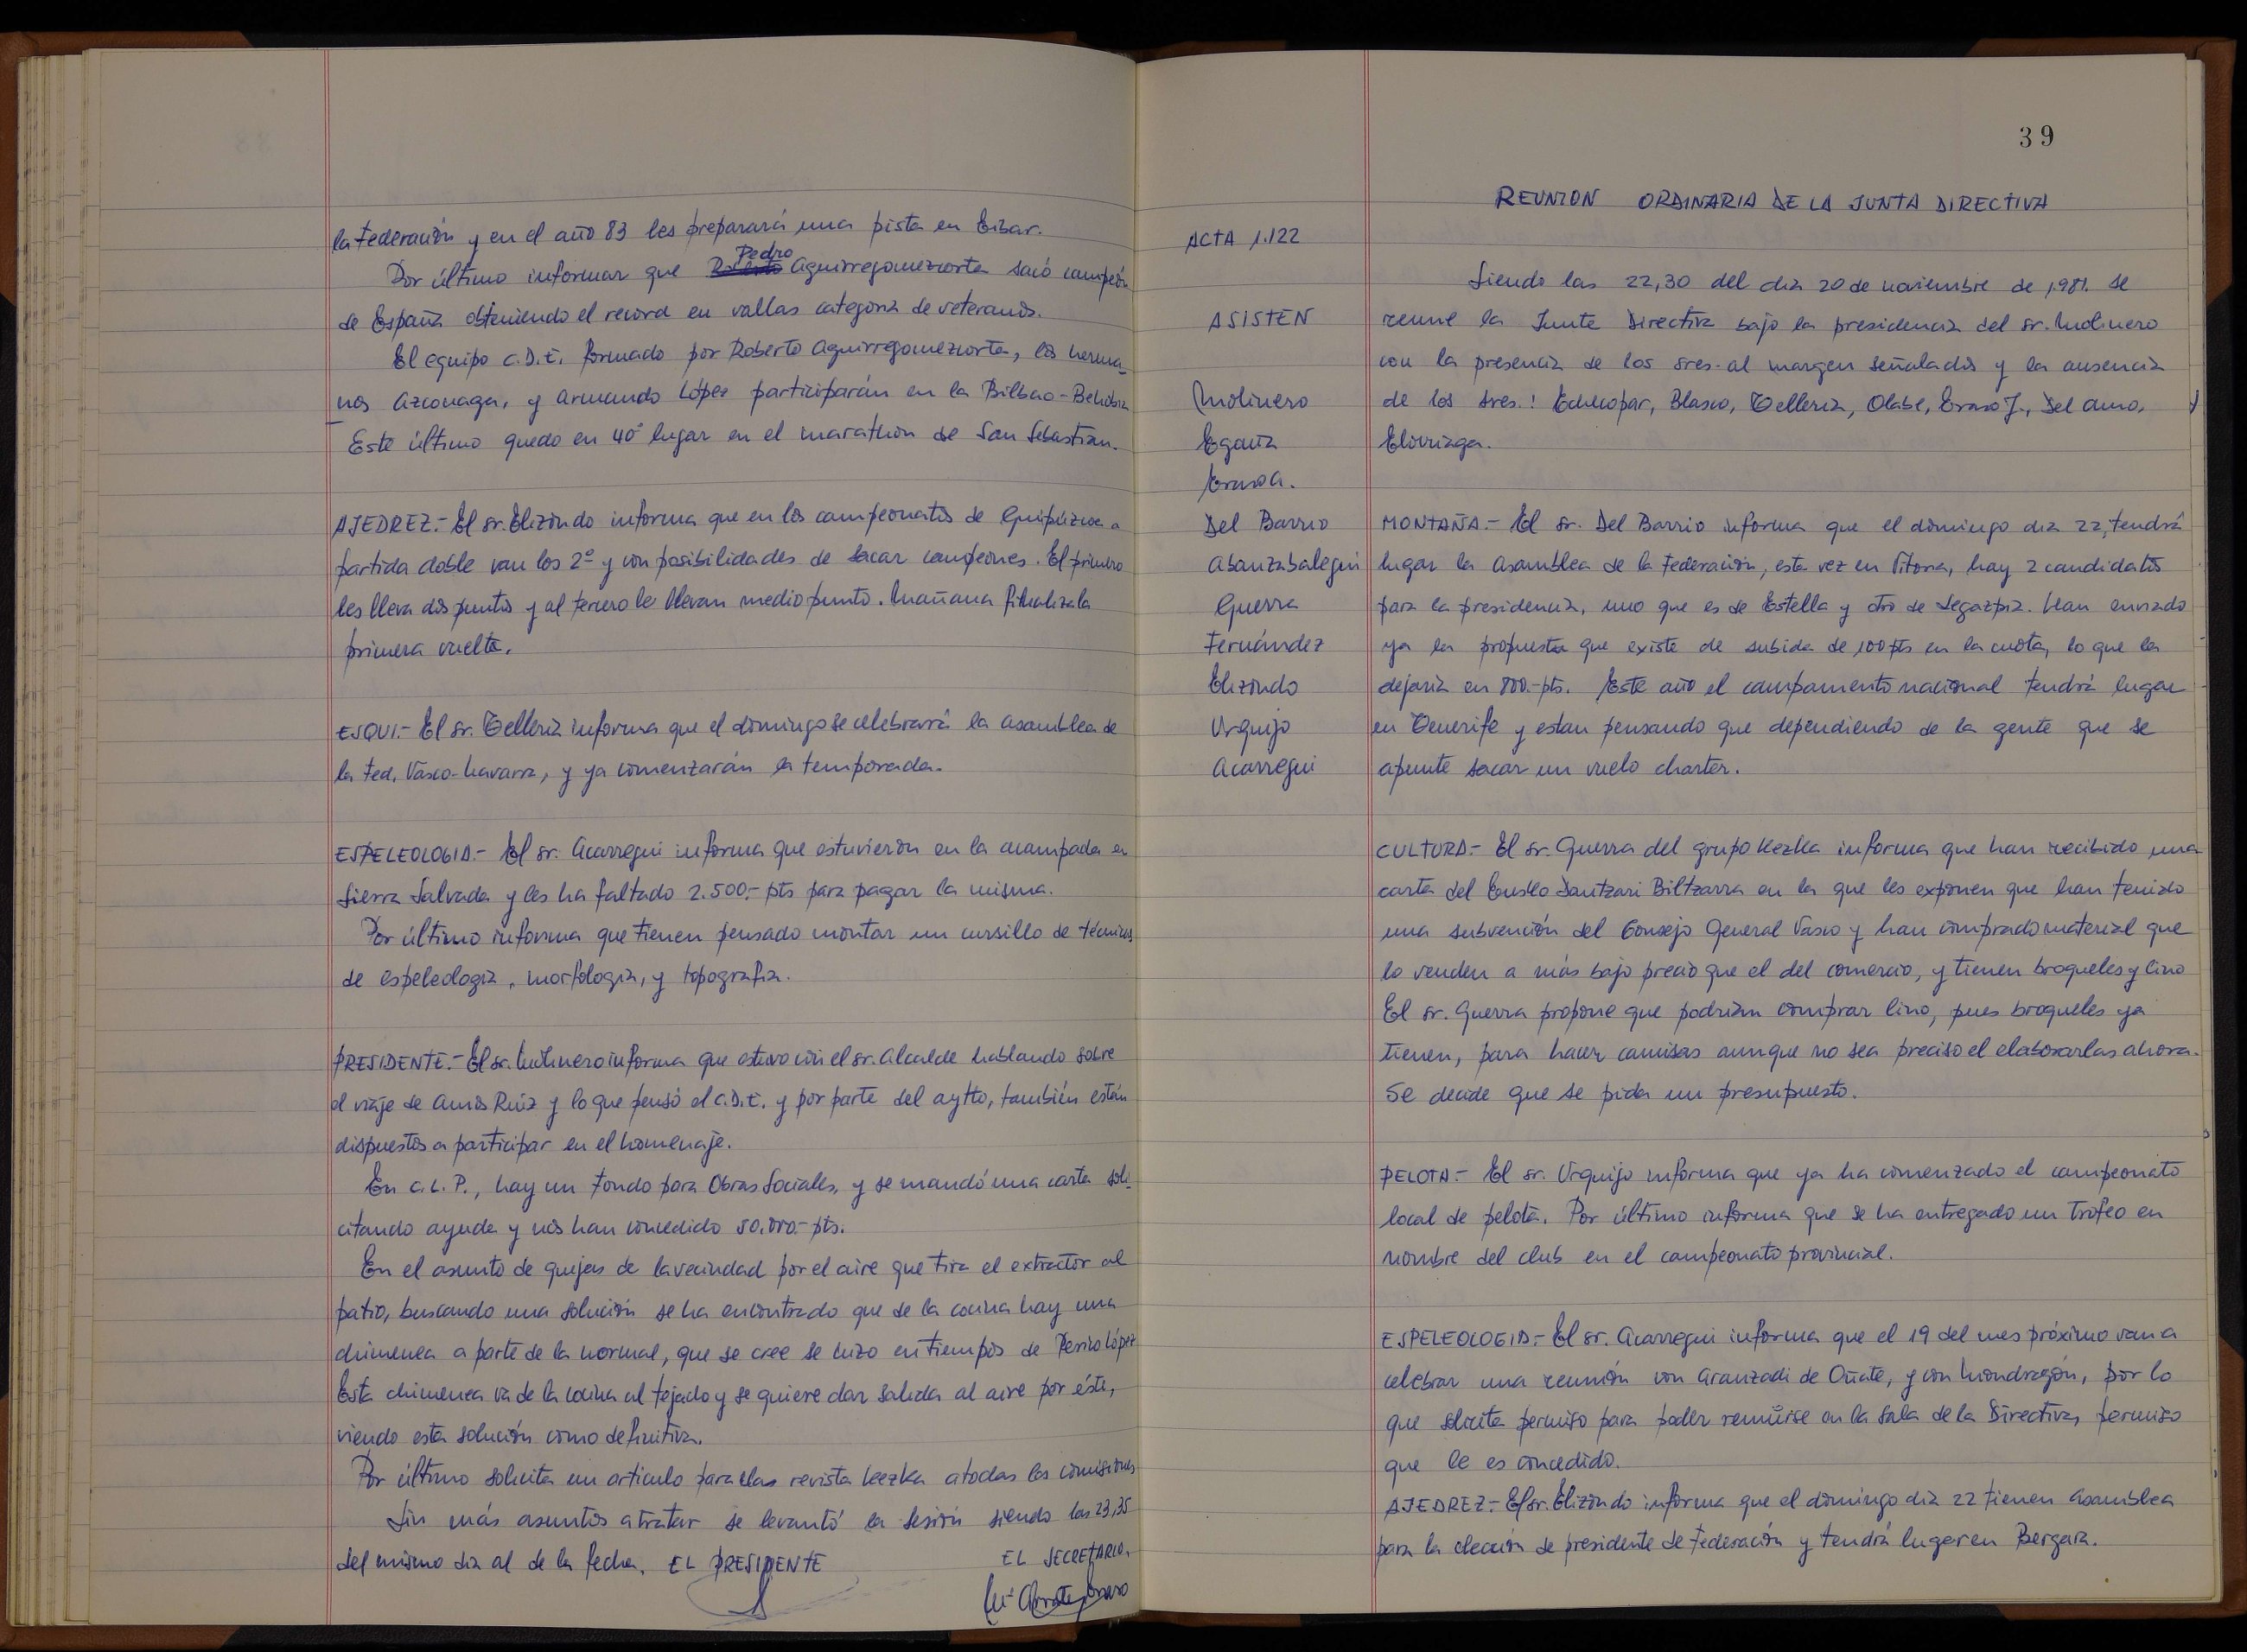 la Federación y en el año 83 les preparará una pista en Eibar.
Por último informar que Roberto Pedro Aguirregomezcorta sacó campeón
de España obteniendo el record en vallas categoria de veteranos.
El equipo C.D.E. formado por Roberto Aguirregomezcorta, los herma-
nos Azconaga, y Armando López participarán en la Bilbao-Behobia
Este último quedo en 40º lugar en el marathon de San Sebastian.
AJEDREZ.- El sr. Elizondo informa que en los campeonatos de Guipúzcoa a
partida doble van los 2º y con posibilidades de sacar campeones. El primero
les lleva dos puntos y al tercero le llevan medio punto. Mañana finaliza la
primera vuelta.
ESQUI.- El sr. Telleria informa que el domingo se celebrará la asamblea de
la Fed. Vasco-Navarra, y ya comenzarán la temporada.
ESPELEOLOGIA.- El sr. Acarregui informa que estuvieron en la acampada en
Sierra Salvada y les ha faltado 2.500.- pts para pagar la misma.
Por último informa que tienen pensado montar un cursillo de técnicas
de espeleologia, morfologia, y topografia.
PRESIDENTE.- El sr. Molinero informa que estuvo con el sr. Alcalde hablando sobre
el viaje de Amos Ruiz y lo que pensó el C.D.E. y por parte del aytto, también están
dispuestos a participar en el homenaje.
En C.L.P., hay un Fondo para Obras Sociales, y se mandó una carta soli-
citando ayuda y nos han concedido 50.000.- pts.
En el asunto de quejas de la vecindad por el aire que tira el extractor al
patio, buscando una solución se ha encontrado que de la cocina hay una
chimenea a parte de la normal, que se cree se hizo en tiempos de Perico López
Esta chimenea va de la cocina al tejado y se quiere dar salida al aire por ésta,
viendo esta solución como definitiva.
Por último solicita un articulo para la revista Kezka a todas las comisiones
Sin más asuntos a tratar se levantó la sesión siendo las 23,35
del mismo dia al de la fecha. EL PRESIDENTE
EL SECRETARIO.
39
REUNION ORDINARIA DE LA JUNTA DIRECTIVA
ACTA 1.122
Siendo las 22,30 del dia 20 de noviembre de 1.981. se
reune la Junta Directiva bajo la presidencia del sr. Molinero
con la presencia de los sres. al margen señalados y la ausencia
de los sres.: Echecopar, Blasco, Telleria, Olabe, Eraso J., Del Amo, y
Elorriaga.
ASISTEN
Molinero
Egaña
Eraso A.
Del Barrio
Abanzabalegui
Guerra
Fernández
Elizondo
Urquijo
Acarregui
MONTAÑA.- El sr. Del Barrio informa que el domingo dia 22, tendrá
lugar la Asamblea de la Federación, esta vez en Vitoria, hay 2 candidatos
para la presidencia, uno que es de Estella y otro de Legazpia. Han enviado
ya la propuesta que existe de subida de 100 pts en la cuota, lo que la
dejaria en 800.- pts. Este año el campamento nacional tendrá lugar
en Tenerife y estan pensando que dependiendo de la gente que se
apunte sacar un vuelo charter.
CULTURA.- El sr. Guerra del grupo Kezka informa que han recibido una
carta del Eusko Dantzari Biltzarra en la que les exponen que han tenido
una subvención del Consejo General Vasco y han comprado material que
lo venden a más bajo precio que el del comercio, y tienen broqueles y lino
El sr. Guerra propone que podrian comprar lino, pues broqueles ya
tienen, para hacer camisas aunque no sea preciso el elaborarlas ahora.
Se decide que se pida un presupuesto.
PELOTA.- El sr. Urquijo informa que ya ha comenzado el campeonato
local de pelota. Por último informa que se ha entregado un trofeo en
nombre del club en el campeonato provincial.
ESPELEOLOGIA.- El sr. Acarregui informa que el 19 del mes próximo van a
celebrar una reunión con Aranzadi de Oñate, y con Mondragón, por lo
que solicita permiso para poder reunirse en la Sala de la Directiva, permiso
que le es concedido.
AJEDREZ.- El sr. Elizondo informa que el domingo dia 22 tienen asamblea
para la elección de presidente de Federación y tendrá lugar en Bergara.